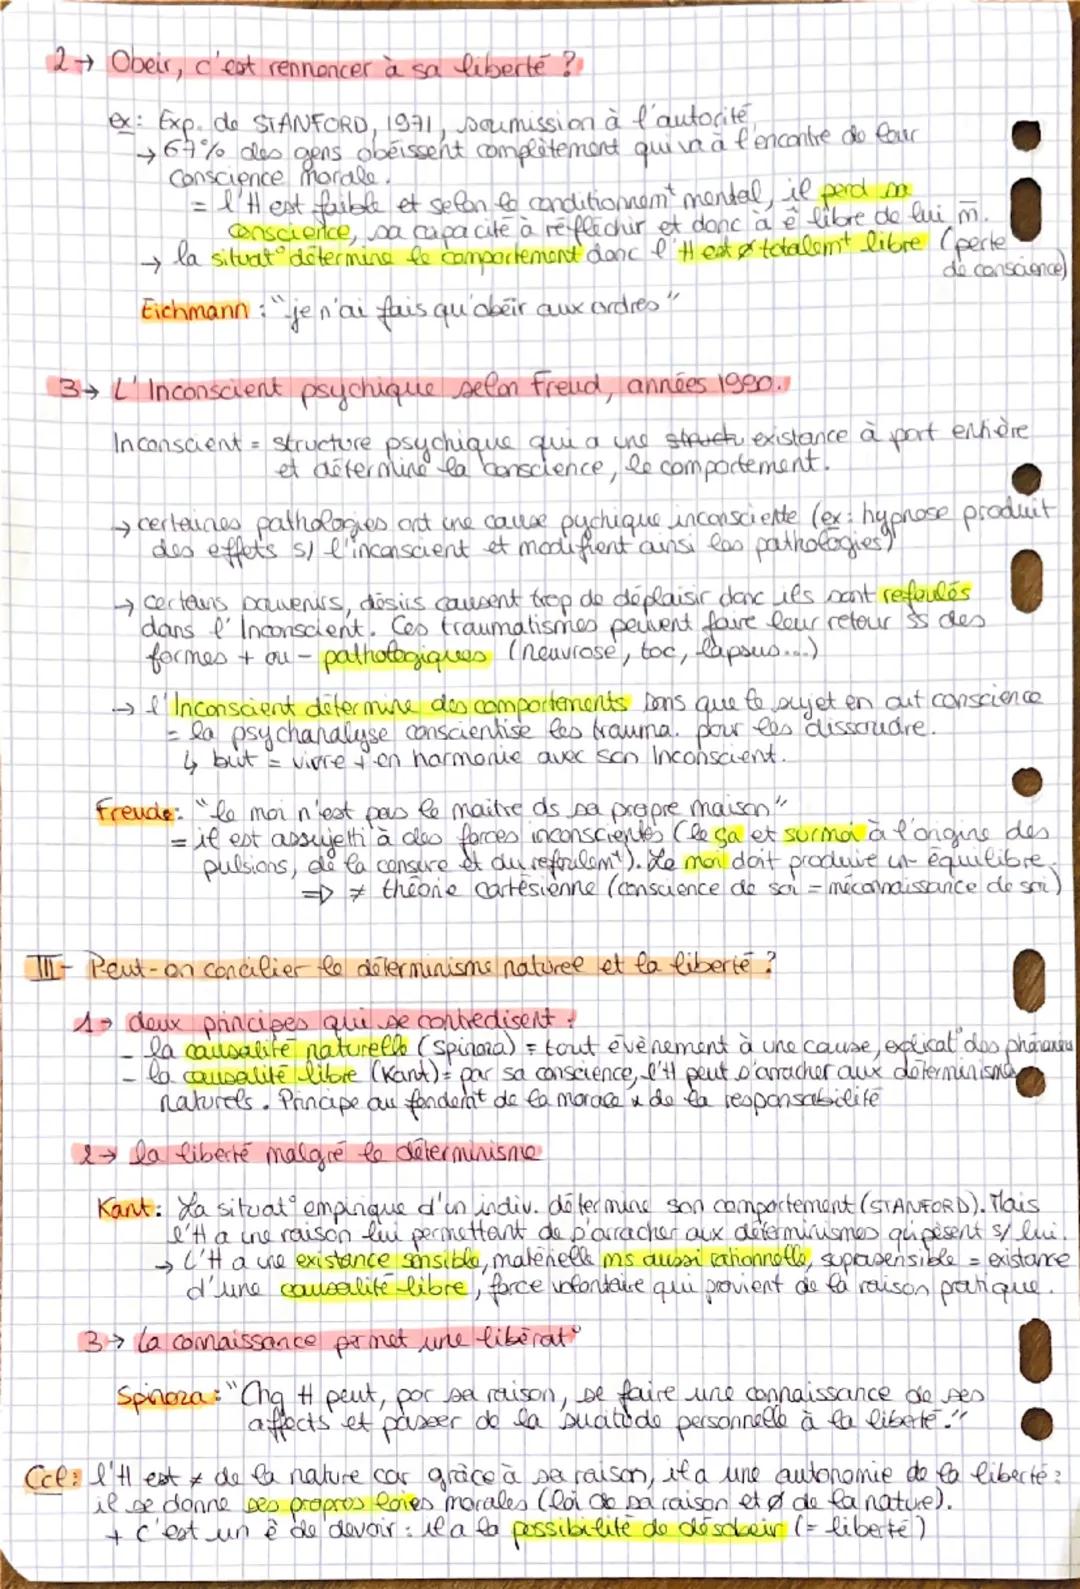 2→ Obeir, c'est rennoncer à sa liberté ?
ex: Exp. de STANFORD, 1971, soumission à l'autorité
→ 67% des gens obéissent complètement qui va à l'encontre de leur
conscience morale.
= l'H est faible et selon le conditionnemt mental, il perd sa
conscience, sa capacité à réfléchir et donc à ê libre de lui m̄.
→ la situat° détermine le comportement donc l'H est ø totalemt libre (perte
de conscience)
Eichmann : "je n'ai fais qu'obéir aux ordres"
3→ L'Inconscient psychique selon Freud, années 1980.
Inconscient = structure psychique qui a une existance à part entière
et détermine la conscience, le comportement.
→ certaines pathologies ont une cause pychique inconsciente (ex: hypnose produit
des effets s/ l'inconscient et modifient ainsi les pathologies)
→ certains souvenirs, désirs causent trop de déplaisir donc ils sont refoulés
dans l'Inconscient. Ces traumatismes peuvent faire leur retour ss des
formes + ou - pathologiques (névrose, toc, lapsus...)
→ l'Inconscient détermine des comportements sans que le sujet en ait conscience
= la psychanalyse conscientise les trauma. pour les dissoudre.
↳ but = vivre + en harmonie avec son Inconscient.
Freude: "le moi n'est pas le maitre ds sa propre maison"
= il est assujetti à des forces inconscientes (le ça et surmoi à l'origine des
pulsions, de la censure et du refoulemt). Le moi doit produire un équilibre.
⇒ ≠ théorie cartésienne (conscience de soi = méconnaissance de soi)
III- Peut-on concilier le déterminisme naturel et la liberté ?
1→ deux principes qui se contredisent :
- la causalité naturelle (Spinoza) = tout évènement à une cause, explicat° des phénomènes
- la causalité libre (Kant) = par sa conscience, l'H peut s'arracher aux déterminismes
naturels. Principe au fondemt de la morale x de la responsabilité
2→ la liberté malgré le déterminisme
Kant: La situat° empirique d'un indiv. détermine son comportement (STANFORD). Mais
l'H a une raison lui permettant de s'arracher aux déterminismes qui pèsent s/ lui.
→ L'H a une existance sensible, matérielle ms aussi rationnelle, suprasensible = existance
d'une causalité libre, force volontaire qui provient de la raison pratique.
3→ la connaissance permet une libérat°
Spinoza: "Chq H peut, par sa raison, se faire une connaissance de ses
affects et passer de la servitude personnelle à la liberté."
Ccl: l'H est ≠ de la nature car grâce à sa raison, il a une autonomie de la liberté :
il se donne ses propres loies morales (loi de sa raison et ø de la nature).
+ c'est un ê de devoir : il a la possibilité de désobeir (= liberté)